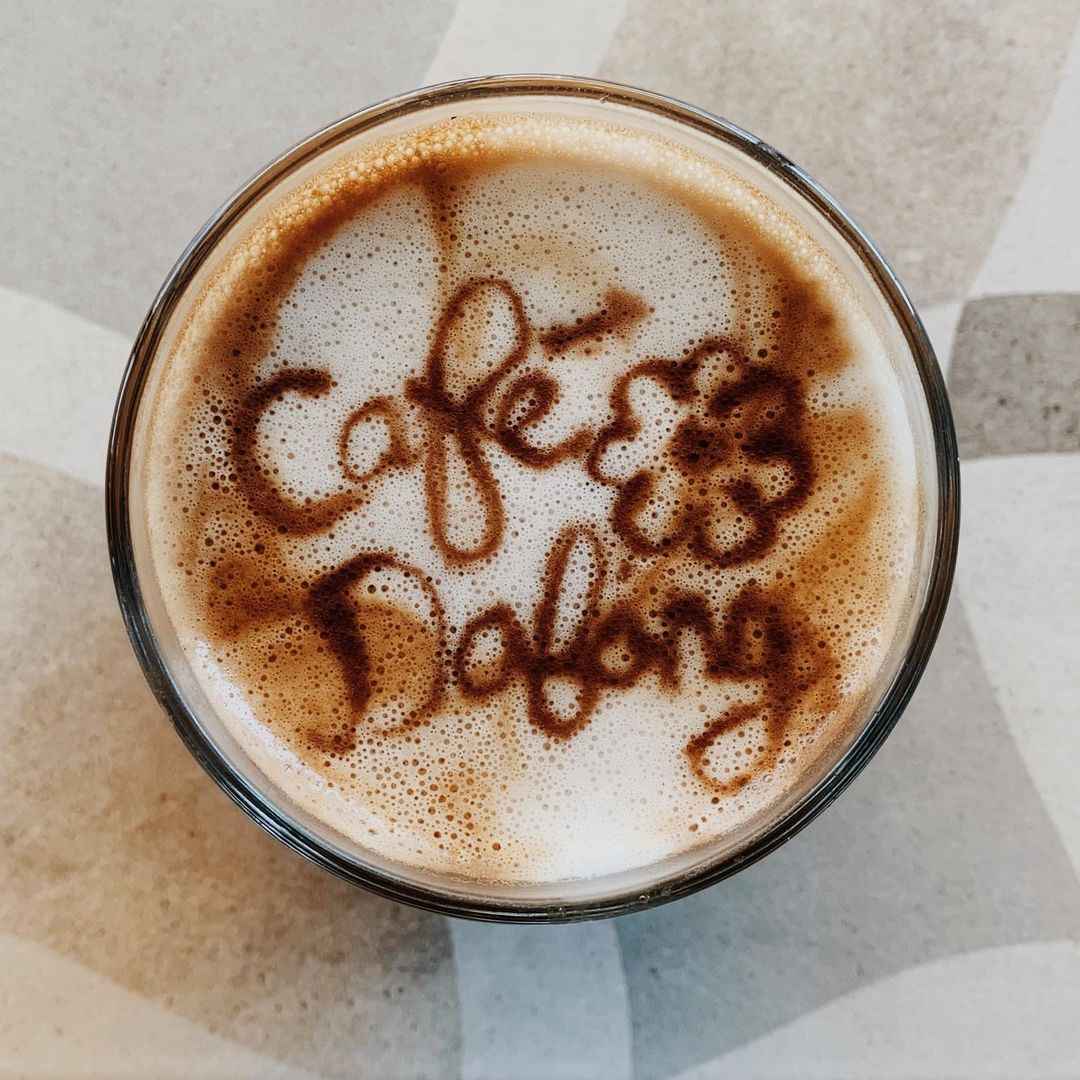 Café
Dafong